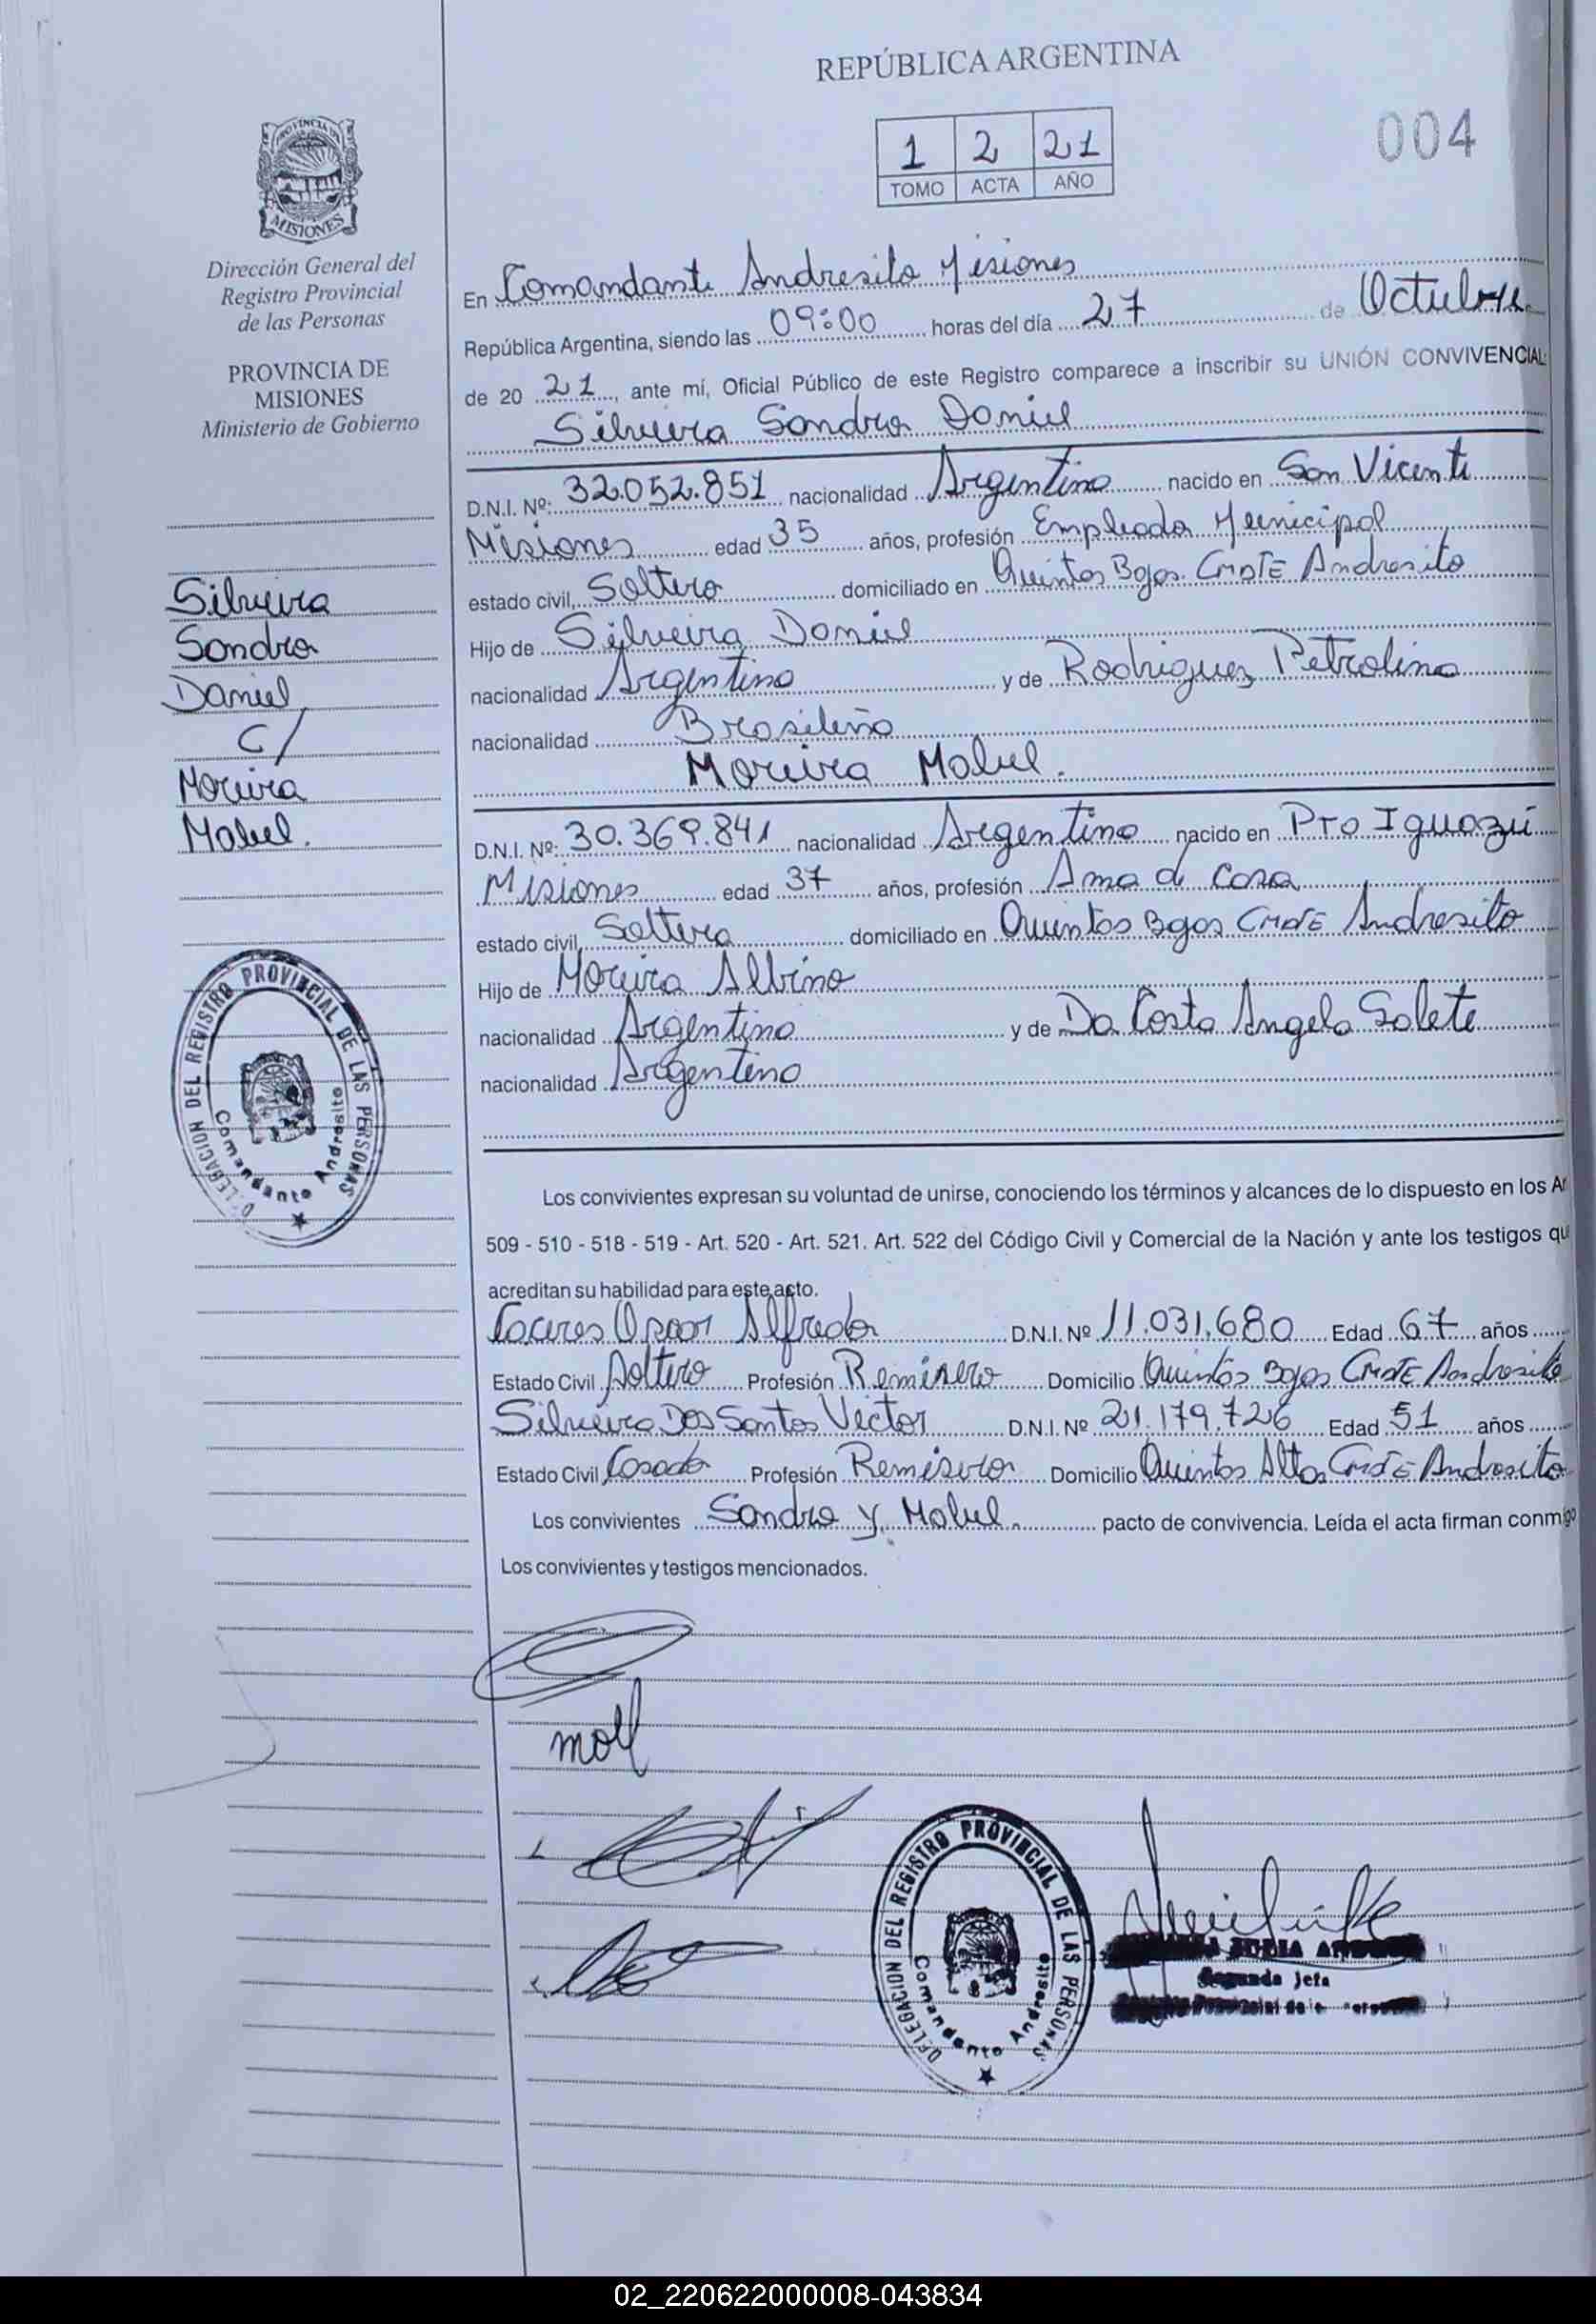 REPÚBLICA ARGENTINA
004
1 2 21
TOMO ACTA AÑO
PROVINCIA DE
MISIONES
Dirección General del
Registro Provincial
de las Personas
PROVINCIA DE
MISIONES
Ministerio de Gobierno
Silveira
Sandro
Daniel
C/
Moreira
Mabel.
DELEGACION DEL REGISTRO PROVINCIAL DE LAS PERSONAS
Comandante Andresito
En Comandante Andresito Misiones
República Argentina, siendo las 09:00 horas del día 27 de Octubre
de 20 21, ante mí, Oficial Público de este Registro comparece a inscribir su UNIÓN CONVIVENCIAL:
Silveira Sandro Daniel
D.N.I. Nº: 32.052.851 nacionalidad Argentino nacido en San Vicente
Misiones edad 35 años, profesión Empleado Municipal
estado civil, Soltero domiciliado en Quintas Bajas CMDTE Andresito
Hijo de Silveira Daniel
nacionalidad Argentino y de Rodriguez Petrolina
nacionalidad Brasileña
Moreira Mabel.
D.N.I. Nº: 30.369.841 nacionalidad Argentina nacido en Pto Iguazú
Misiones edad 37 años, profesión Ama d Casa
estado civil, Soltera domiciliado en Quintas Bajas CMDTE Andresito
Hijo de Moreira Albino
nacionalidad Argentino y de Da Costa Angela Salete
nacionalidad Argentina
Los convivientes expresan su voluntad de unirse, conociendo los términos y alcances de lo dispuesto en los Ar
509 - 510 - 518 - 519 - Art. 520 - Art. 521. Art. 522 del Código Civil y Comercial de la Nación y ante los testigos qu
acreditan su habilidad para este acto.
Caceres Oscar Alfredo D.N.I. Nº 11.031.680 Edad 67 años
Estado Civil Soltero Profesión Remisero Domicilio Quintas Bajas CMDTE Andresito
Silveira Dos Santos Victor D.N.I. Nº 21.179.726 Edad 51 años
Estado Civil Casado Profesión Remisero Domicilio Quintas Altas CMDTE Andresito
Los convivientes Sandro y Mabel. pacto de convivencia. Leída el acta firman conmigo
Los convivientes y testigos mencionados.
DELEGACION DEL REGISTRO PROVINCIAL DE LAS PERSONAS
Comandante Andresito
Segunda Jefa
02_220622000008-043834